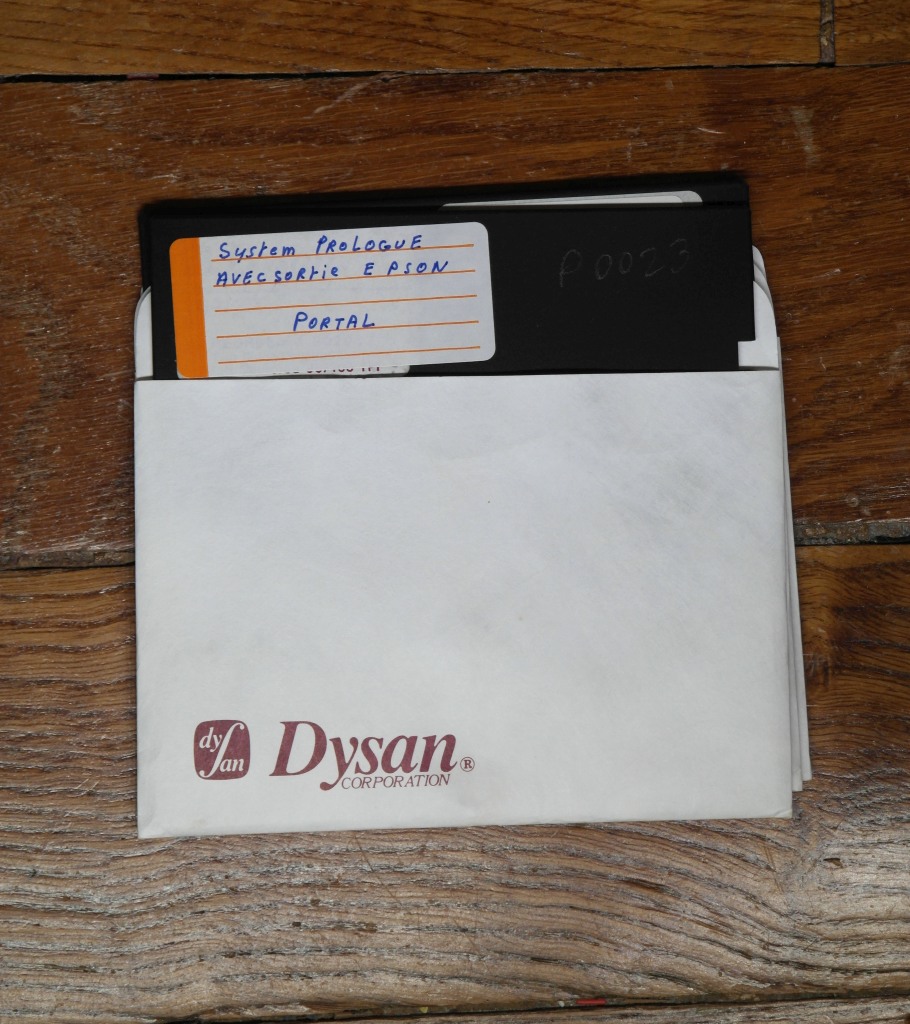 System PROLOGUE
AVEC SORTIE EPSON
PORTAL
P0023
dysan
Dysan®
CORPORATION